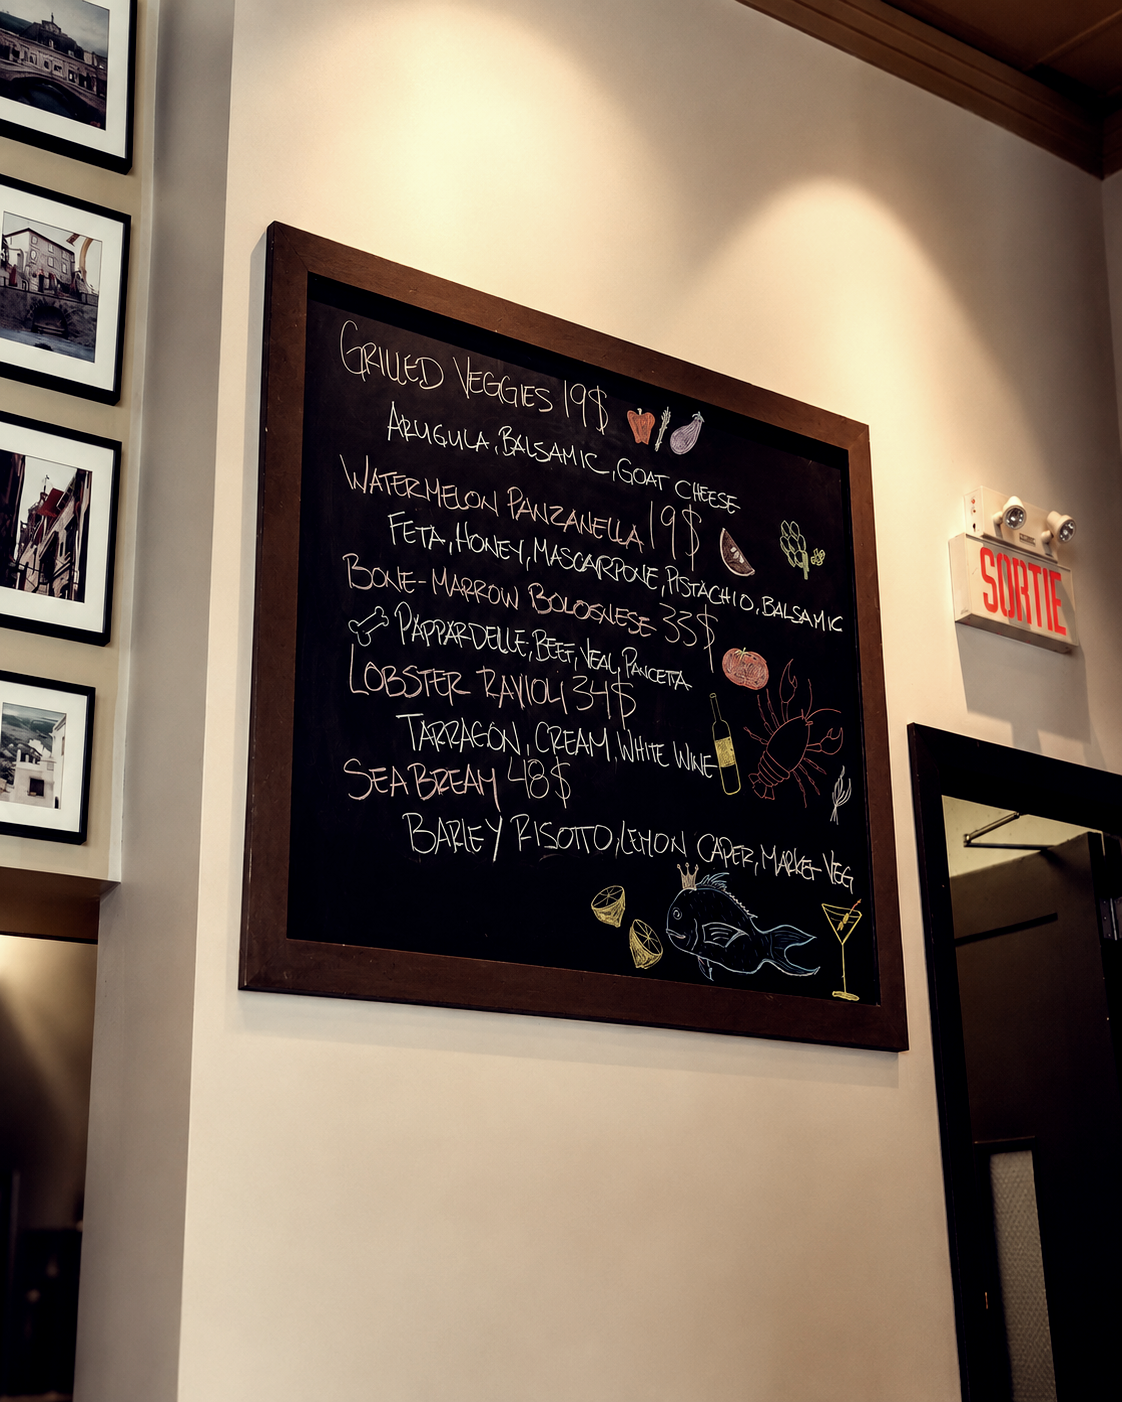 GRILLED VEGGIES 19$
ARUGULA, BALSAMIC, GOAT CHEESE
WATERMELON PANZANELLA 19$
FETA, HONEY, MASCARPONE, PISTACHIO, BALSAMIC
BONE-MARROW BOLOGNESE 33$
PAPPARDELLE, BEEF, VEAL, PANCETTA
LOBSTER RAVIOLI 34$
TARRAGON, CREAM, WHITE WINE
SEA BREAM 48$
BARLEY RISOTTO, LEMON CAPER, MARKET VEG
SORTIE